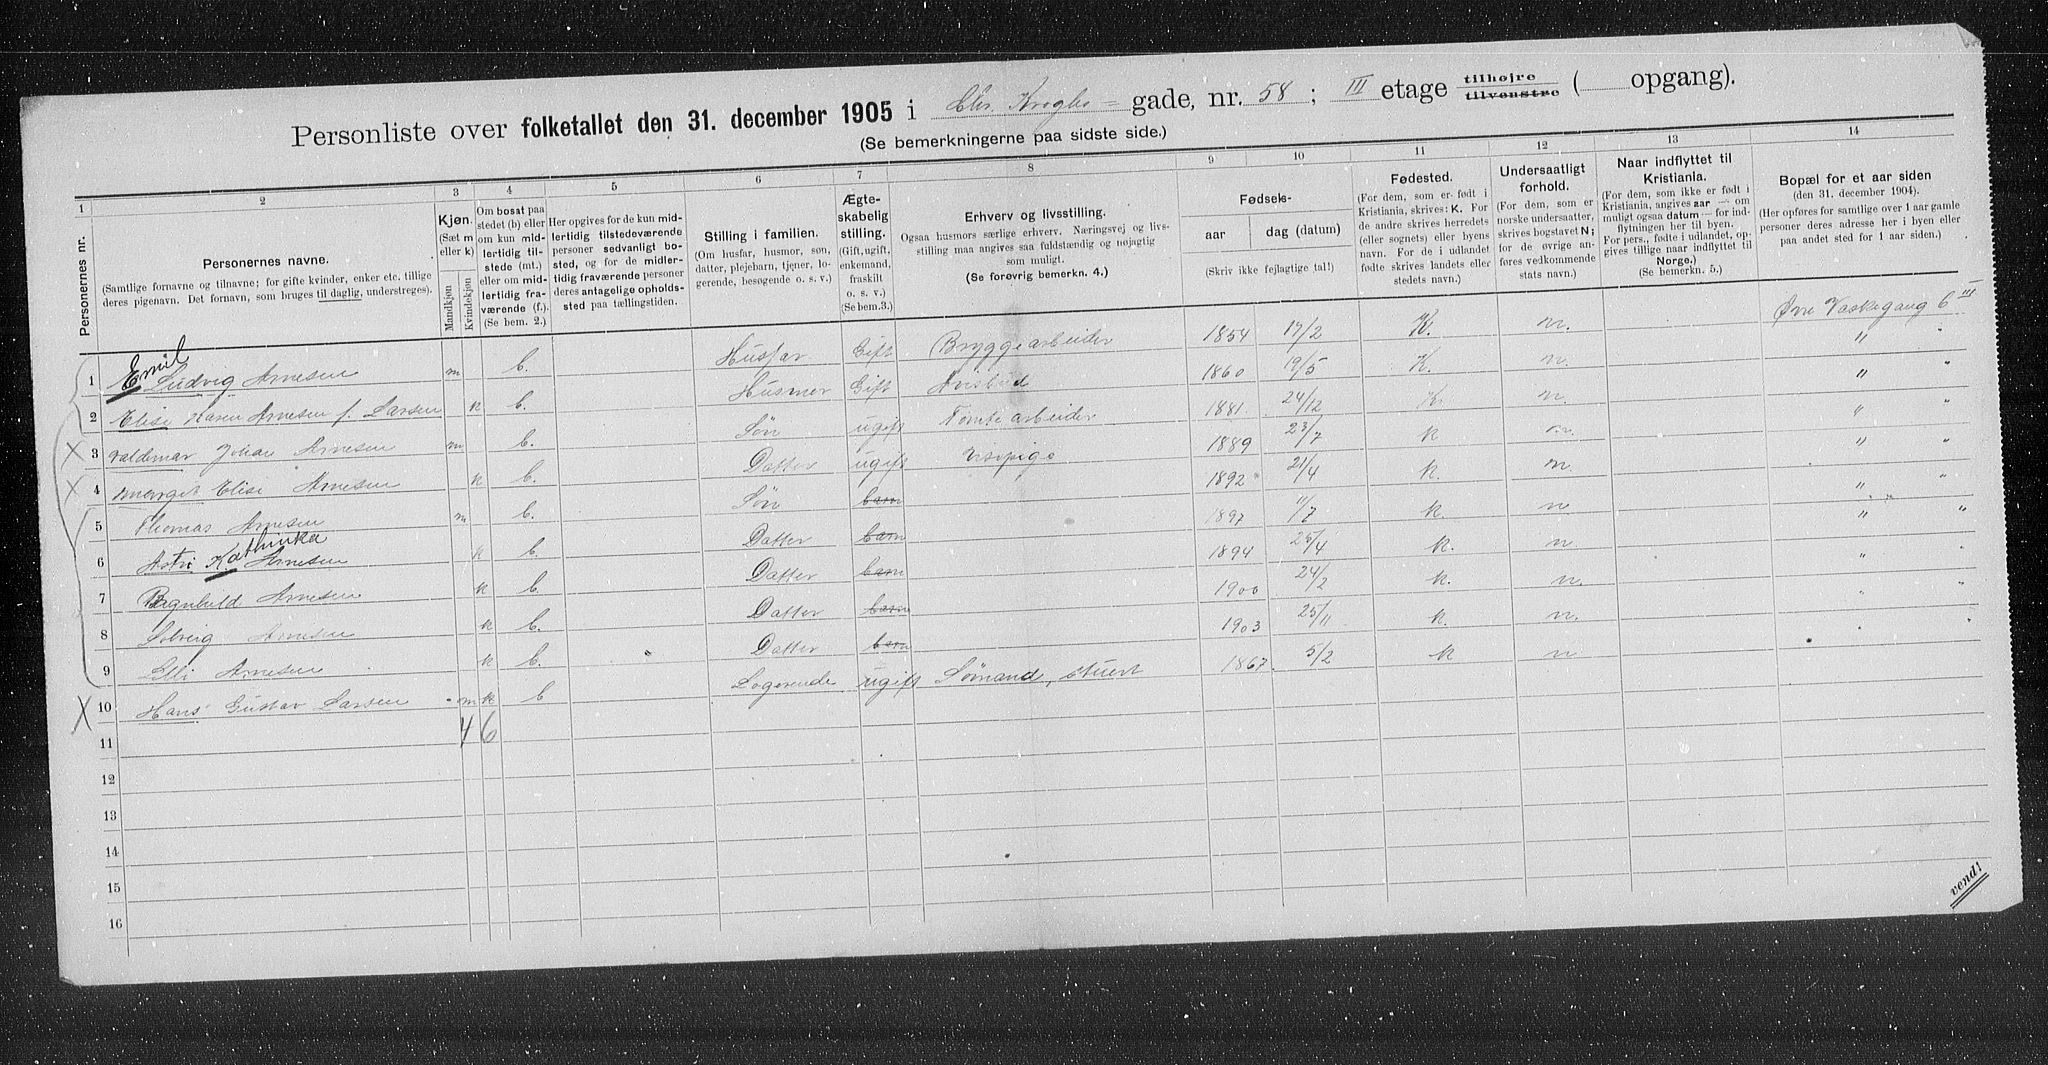 Personliste over folketallet den 31. december 1905 i Chr. Kroghs = gade, nr. 58 ; III etage tilhøjre tilvenstre ( opgang).
(Se bemerkningerne paa sidste side.)
1 2 3 4 5 6 7 8 9 10 11 12 13 14
Personernes nr.
Personernes navne.
(Samtlige fornavne og tilnavne; for gifte kvinder, enker etc. tillige deres pigenavn. Det fornavn, som bruges til daglig, understreges).
Kjøn.
(Sæt m eller k)
Mandkjøn
Kvindekjøn
Om bosat paa stedet (b) eller om kun midlertidig tilstede (mt.) eller om midlertidig fraværende (f.). (Se bem. 2.)
Her opgives for de kun midlertidig tilstedeværende personer sedvanligt bosted, og for de midlertidig fraværende personer deres antagelige opholdssted paa tællingstiden.
Stilling i familien.
(Om husfar, husmor, søn, datter, plejebarn, tjener, logerende, besøgende o. s. v.)
Ægteskabelig stilling.
(Gift, ugift, enkemand, fraskilt o. s. v.) (Se bem.3.)
Erhverv og livsstilling.
Ogsaa husmors særlige erhverv. Næringsvej og livsstilling maa angives saa fuldstændig og nøjagtig som muligt.
(Se forøvrig bemerkn. 4.)
Fødsels-
aar dag (datum)
(Skriv ikke fejlagtige tal!)
Fødested.
(For dem, som er født i Kristiania, skrives: K. For de andre skrives herredets (eller sognets) eller byens navn. For de i udlandet fødte skrives landets eller stedets navn.)
Undersaatligt forhold.
(For dem, som er norske undersaatter, skrives bogstavet N; for de øvrige anføres vedkommende stats navn.)
Naar indflyttet til Kristiania.
(For dem, som ikke er født i Kristiania, angives aar — om muligt ogsaa datum — for indflytningen her til byen. For pers., fødte i udlandet, opgives tillige naar indflyttet til Norge.) (Se bemerkn. 5.)
Bopæl for et aar siden
(den 31. december 1904).
(Her opføres for samtlige over 1 aar gamle personer deres adresse her i byen eller paa andet sted for 1 aar siden.)
Emil
1 Ludvig Arnesen m b. Husfar Gift Bryggearbeider 1854 17/2 K. n. Øvre Vaskegang 6 III
2 Elise Karen Arnesen f. Larsen k b. Husmor Gift Avisbud 1860 19/5 K. n. " "
X 3 Valdemar Johan Arnesen m b. Søn ugift Tomtearbeider 1881. 24/12 K n. " "
X 4 Margit Elise Arnesen k b. Datter ugift Visepige 1889 23/7 k n. " "
5 Thomas Arnesen m b. Søn barn 1892 21/4 k. n. " "
Kathinka
6 Astri Arnesen k b. Datter barn 1897 11/7 k n " "
7 Ragnhild Arnesen k b. Datter barn 1894 25/4 k. n. " "
8 Solveig Arnesen k b. Datter barn 1900 24/2 k. n. " "
9 Elli Arnesen k b. Datter barn 1903 25/11 k. n. " "
X 10 Hans Gustav Larsen m k b Logerende ugift Sømand, stuert 1867. 5/2 k n "
11 4 6
12
13
14
15
16
vend!